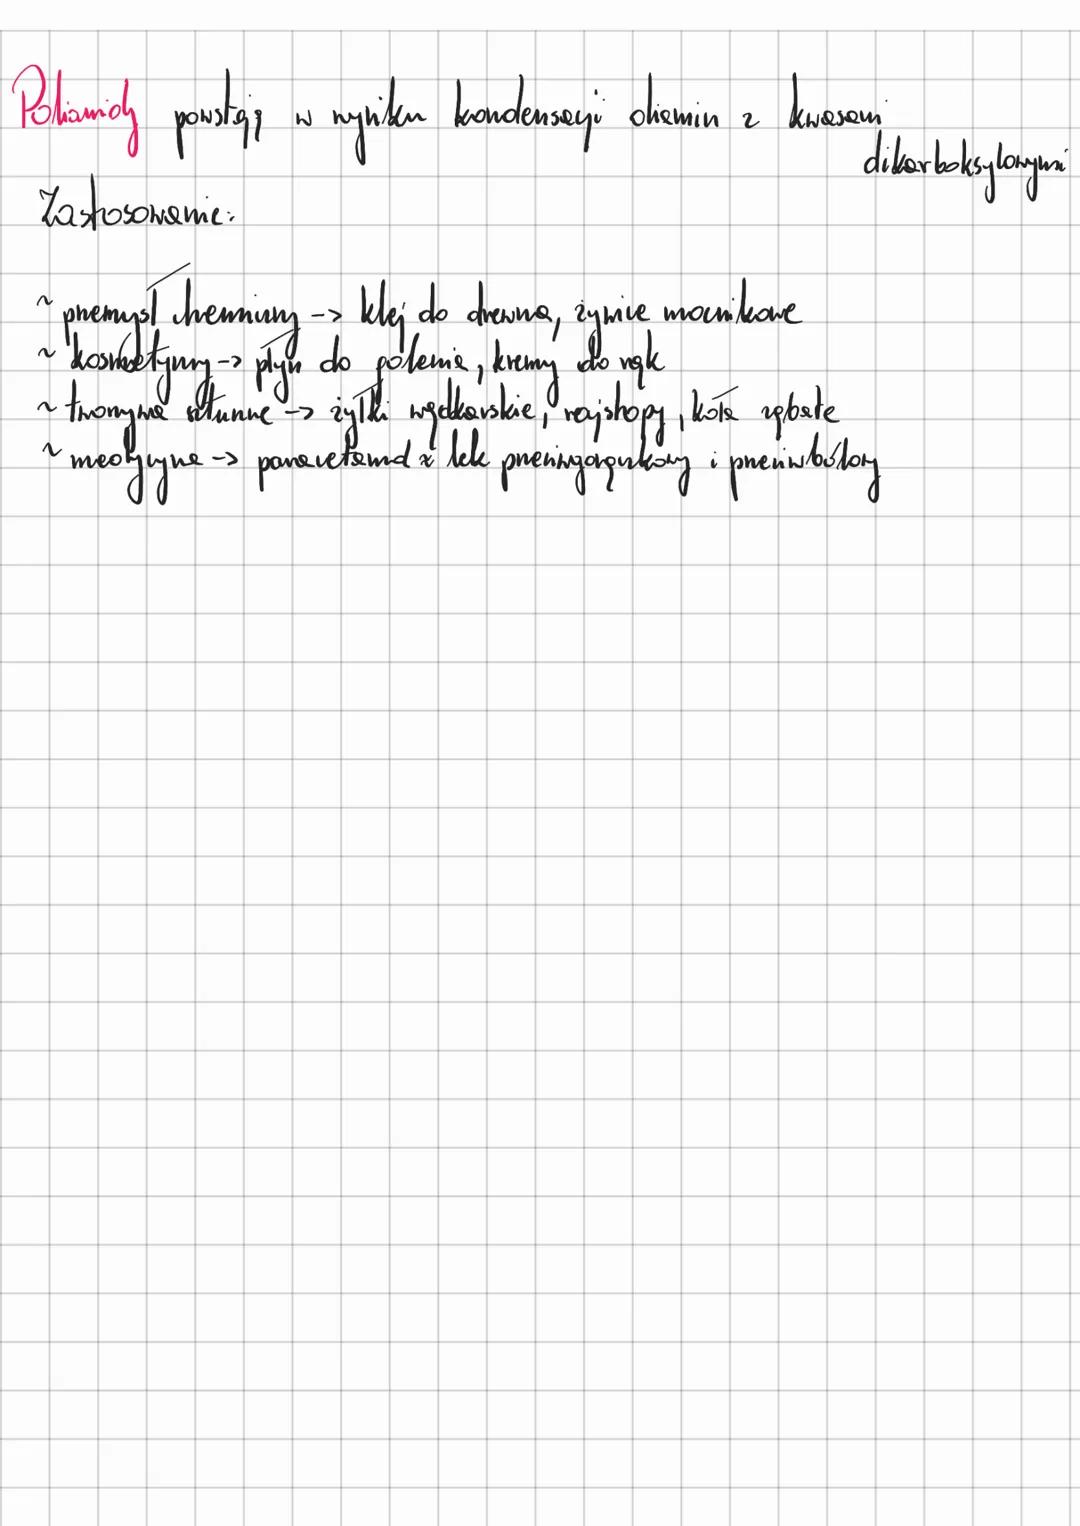 Poliamidy powstają w wyniku kondensacji diamin z kwasami
dikarboksylowymi
Zastosowanie:
~ przemysł chemiczny -> klej do drewna, żywice mocznikowe
~ kosmetyczny -> płyn do golenia, kremy do rąk
~ tworzywa sztuczne -> żyłki wędkarskie, rajstopy, koła zębate
~ medycyna -> paracetamol ~ lek przeciwgorączkowy i przeciwbólowy